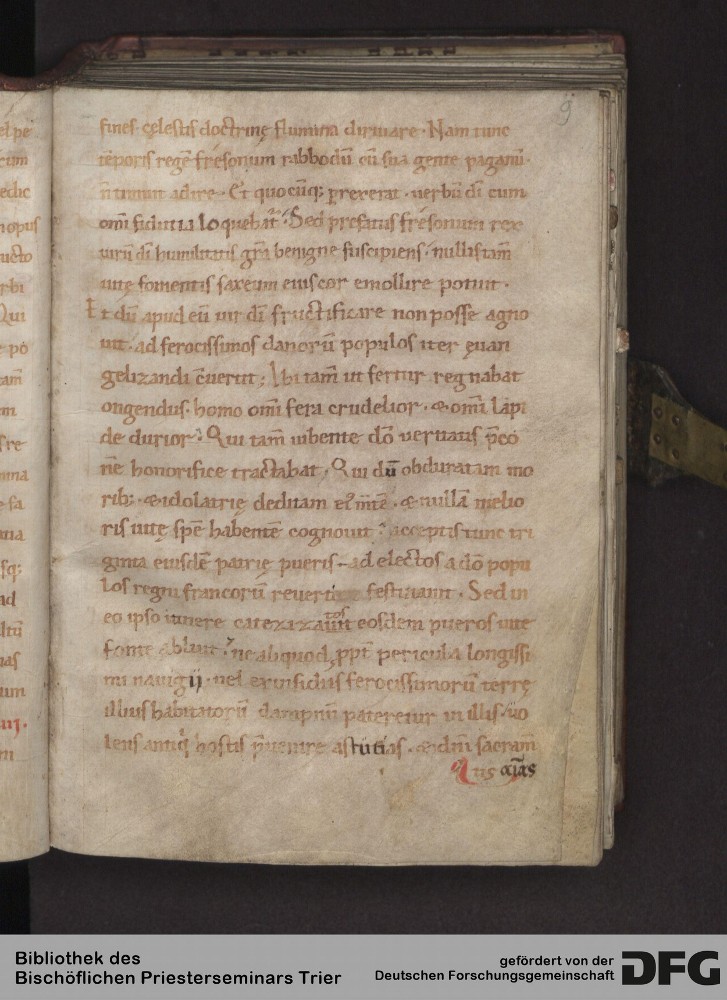 9
fines cęlestis doctrinę flumina diriuare. Nam tunc
tēporis regē fresonum rabbodū cū sua gente paganū.
ñ timuit adire. Et quocūq; ꝑrexerat. uerbū dī cum
omī fiducia loquebat̄. Sed prefatus fresonum rex
uirū dī humilitatis grā benigne suscipiens. nullis tam̄
uitę fomentis saxeum eius cor emollire potuit.
Et dū apud eū uir dī fructificare non posse agno
uit. ad ferocissimos danorū populos iter ęuan
gelizandi c̄uertit; Ibi tam̄ ut fertur regnabat
ongendus. homo omī fera crudelior. & omī lapi
de durior. Qui tam̄ iubente dō ueritatis p̄co
nē honorifice tractabat. Qui dū obduratam mo
rib; & idolatrię deditam ei' m̄tē. & nullā melio
ris uitę spē habentē cognouit. acceptis tunc tri
ginta eiusdē patrię pueris. ad electos a dō popu
los regni francorū reuerti festinauit. Sed in
eo ipso itinere catezizatos eosdem pueros uitę
fonte abluit. ne aliquod ꝓpt̄ pericula longissi
mi nauigij. uel ex insidiis ferocissimorū terrę
illius habitatorū dampnū pateretur in illis. uo
lens antiq̇ hostis p̄uenire astutias. & dn̄i sacram̄
tis aīas
el pe
cum
edic
opus
ucto
rbi
Qui
po
tam̄
ad
ltū
uas
um
Bibliothek des
Bischöflichen Priesterseminars Trier
gefördert von der
Deutschen Forschungsgemeinschaft
DFG